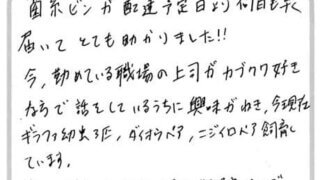 菌糸ビンが配達予定日より何日も早く
届いてとても助かりました!!
今,勤めている職場の上司がカブクワ好き
ならで話をしているうちに興味がわき,今現在
ギラファ幼虫3匹,ダイオウペア,ニジイロペア飼育し
ています。